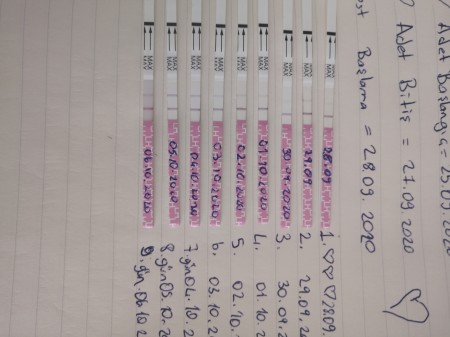 Adet Baslangıç = 25.09.202
Adet Bitis = 27.09.2020
st Baslama = 28.09.2020
MAX MAX 28.09 1. ♡♡♡ 28.09.
MAX MAX 29.09 2. 29.09.2
MAX MAX 30.09.2020 3. 30.09.2
MAX MAX 01.10.2020 4. 01.10.2
MAX MAX 02.10.2020 5. 02.10.
MAX MAX 03.10.2020 6. 03.10.2
MAX MAX 04.10.2020 7.gün 04.10.2
MAX MAX 05.10.2020 8.gün 05.10.2
MAX MAX 06.10.2020 9.gün 06.10.2